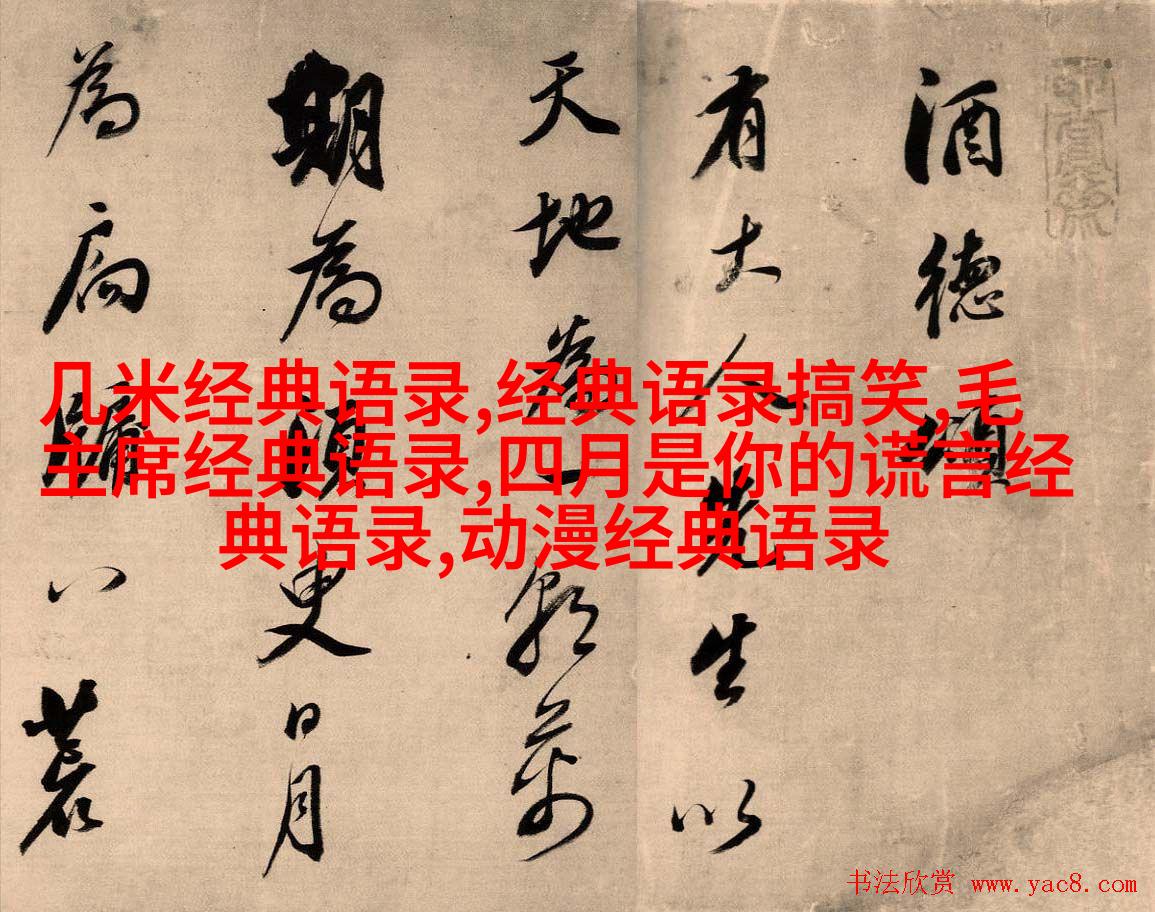 酒德頌
有大人先生以
天地為一朝萬
期為須臾日月
為扃牖八荒
几米经典语录,经典语录搞笑,毛
主席经典语录,四月是你的谎言经
典语录,动漫经典语录
书法欣赏 www.yac8.com